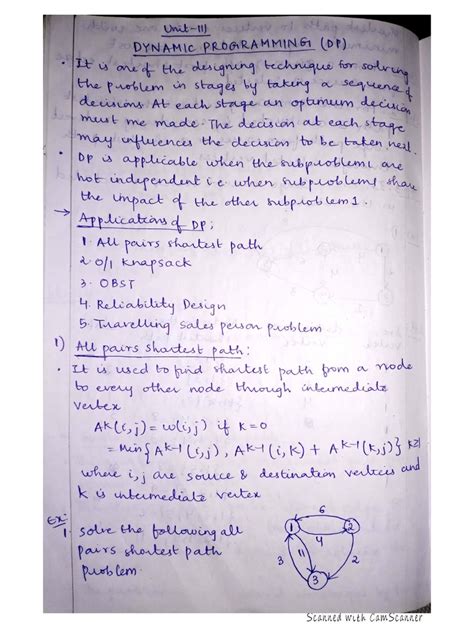 Unit-III
DYNAMIC PROGRAMMING (DP)
• It is one of the designing technique for solving
the problem in stages by taking a sequence of
decisions. At each stage an optimum decision
must me made. The decision at each stage
may influences the decision to be taken next.
• DP is applicable when the subproblems are
not independent i.e when subproblems share
the impact of the other subproblems.
→ Applications of DP:
1. All pairs shortest path
2. 0/1 Knapsack
3. OBST
4. Reliability Design
5. Travelling sales person problem
1) All pairs shortest path:
• It is used to find shortest path from a node
to every other node through intermediate
vertex.
A^k(i,j) = w(i,j) if k=0
= Min{A^k-1(i,j), A^k-1(i,k) + A^k-1(k,j)}
where i,j are source & destination vertices and
k is intermediate vertex
Ex:
1. solve the following all
pairs shortest path
problem.
6
1 2
4
3 11 2
3
Scanned with CamScanner